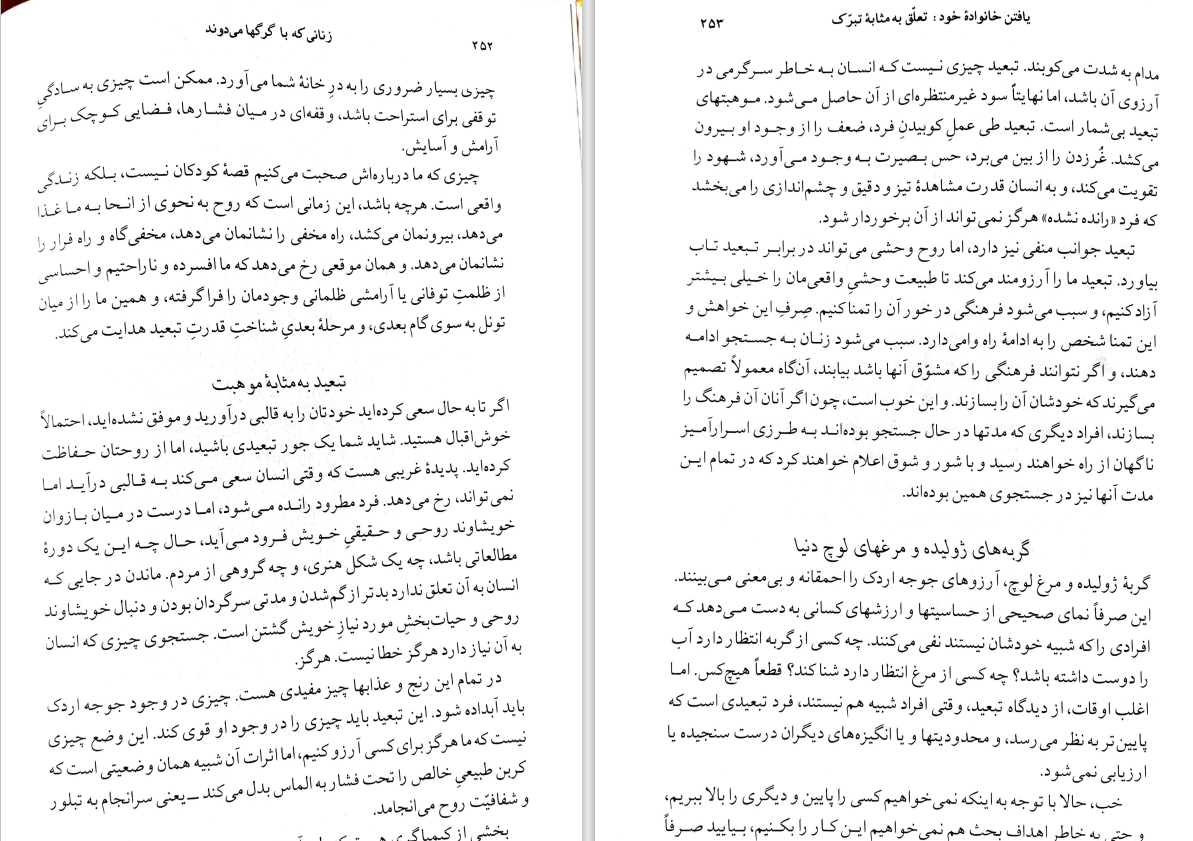 زنانی که با گرگها می‌دوند
۲۵۲
چیزی بسیار ضروری را به درِ خانهٔ شما می‌آورد. ممکن است چیزی به سادگیِ
توقفی برای استراحت باشد، وقفه‌ای در میان فشارها، فضایی کوچک برای
آرامش و آسایش.
چیزی که ما درباره‌اش صحبت می‌کنیم قصهٔ کودکان نیست، بلکه زندگی
واقعی است. هرچه باشد، این زمانی است که روح به نحوی از انحا به ما غذا
می‌دهد، بیرونمان می‌کشد، راه مخفی را نشانمان می‌دهد، مخفی‌گاه و راه فرار را
نشانمان می‌دهد. و همان موقعی رخ می‌دهد که ما افسرده و ناراحتیم و احساسی
از ظلمتِ توفانی یا آرامشی ظلمانی وجودمان را فراگرفته، و همین ما را از میان
تونل به سوی گام بعدی، و مرحلهٔ بعدیِ شناختِ قدرتِ تبعید هدایت می‌کند.
تبعید به مثابهٔ موهبت
اگر تا به حال سعی کرده‌اید خودتان را به قالبی درآورید و موفق نشده‌اید، احتمالاً
خوش‌اقبال هستید. شاید شما یک جور تبعیدی باشید، اما از روحتان حفاظت
کرده‌اید. پدیدهٔ غریبی هست که وقتی انسان سعی می‌کند به قالبی درآید اما
نمی‌تواند، رخ می‌دهد. فرد مطرود رانده می‌شود، اما درست در میان بازوان
خویشاوند روحی و حقیقیِ خویش فرود می‌آید، حال چه این یک دورهٔ
مطالعاتی باشد، چه یک شکل هنری، و چه گروهی از مردم. ماندن در جایی که
انسان به آن تعلق ندارد بدتر از گم‌شدن و مدتی سرگردان بودن و دنبال خویشاوند
روحی و حیات‌بخشِ مورد نیازِ خویش گشتن است. جستجوی چیزی که انسان
به آن نیاز دارد هرگز خطا نیست. هرگز.
در تمام این رنج و عذابها چیز مفیدی هست. چیزی در وجود جوجه اردک
باید آبداده شود. این تبعید باید چیزی را در وجود او قوی کند. این وضع چیزی
نیست که ما هرگز برای کسی آرزو کنیم، اما اثرات آن شبیه همان وضعیتی است که
کربن طبیعیِ خالص را تحت فشار به الماس بدل می‌کند ــ یعنی سرانجام به تبلور
و شفافیّت روح می‌انجامد.
بخشی از کیمیاگری هست که
یافتن خانوادهٔ خود: تعلّق به مثابهٔ تبرّک
۲۵۳
مدام به شدت می‌کوبند. تبعید چیزی نیست که انسان به خاطر سرگرمی در
آرزوی آن باشد، اما نهایتاً سود غیرمنتظره‌ای از آن حاصل می‌شود. موهبتهای
تبعید بی‌شمار است. تبعید طی عملِ کوبیدنِ فرد، ضعف را از وجود او بیرون
می‌کشد. غُرزدن را از بین می‌برد، حس بصیرت به وجود می‌آورد، شهود را
تقویت می‌کند، و به انسان قدرت مشاهدهٔ تیز و دقیق و چشم‌اندازی را می‌بخشد
که فرد «رانده نشده» هرگز نمی‌تواند از آن برخوردار شود.
تبعید جوانب منفی نیز دارد، اما روح وحشی می‌تواند در برابر تبعید تاب
بیاورد. تبعید ما را آرزومند می‌کند تا طبیعت وحشیِ واقعی‌مان را خیلی بیشتر
آزاد کنیم، و سبب می‌شود فرهنگی در خور آن را تمنا کنیم. صِرفِ این خواهش و
این تمنا شخص را به ادامهٔ راه وامی‌دارد. سبب می‌شود زنان به جستجو ادامه
دهند، و اگر نتوانند فرهنگی را که مشوّق آنها باشد بیابند، آن‌گاه معمولاً تصمیم
می‌گیرند که خودشان آن را بسازند. و این خوب است، چون اگر آنان آن فرهنگ را
بسازند، افراد دیگری که مدتها در حال جستجو بوده‌اند به طرزی اسرارآمیز
ناگهان از راه خواهند رسید و با شور و شوق اعلام خواهند کرد که در تمام این
مدت آنها نیز در جستجوی همین بوده‌اند.
گربه‌های ژولیده و مرغهای لوچ دنیا
گربهٔ ژولیده و مرغ لوچ، آرزوهای جوجه اردک را احمقانه و بی‌معنی می‌بینند.
این صرفاً نمای صحیحی از حساسیتها و ارزشهای کسانی به دست می‌دهد که
افرادی را که شبیه خودشان نیستند نفی می‌کنند. چه کسی از گربه انتظار دارد آب
را دوست داشته باشد؟ چه کسی از مرغ انتظار دارد شنا کند؟ قطعاً هیچ‌کس. اما
اغلب اوقات، از دیدگاه تبعید، وقتی افراد شبیه هم نیستند، فرد تبعیدی است که
پایین‌تر به نظر می‌رسد، و محدودیتها و یا انگیزه‌های دیگران درست سنجیده یا
ارزیابی نمی‌شود.
خب، حالا با توجه به اینکه نمی‌خواهیم کسی را پایین و دیگری را بالا ببریم،
و حتی به خاطر اهداف بحث هم نمی‌خواهیم این کار را بکنیم، بیایید صرفاً